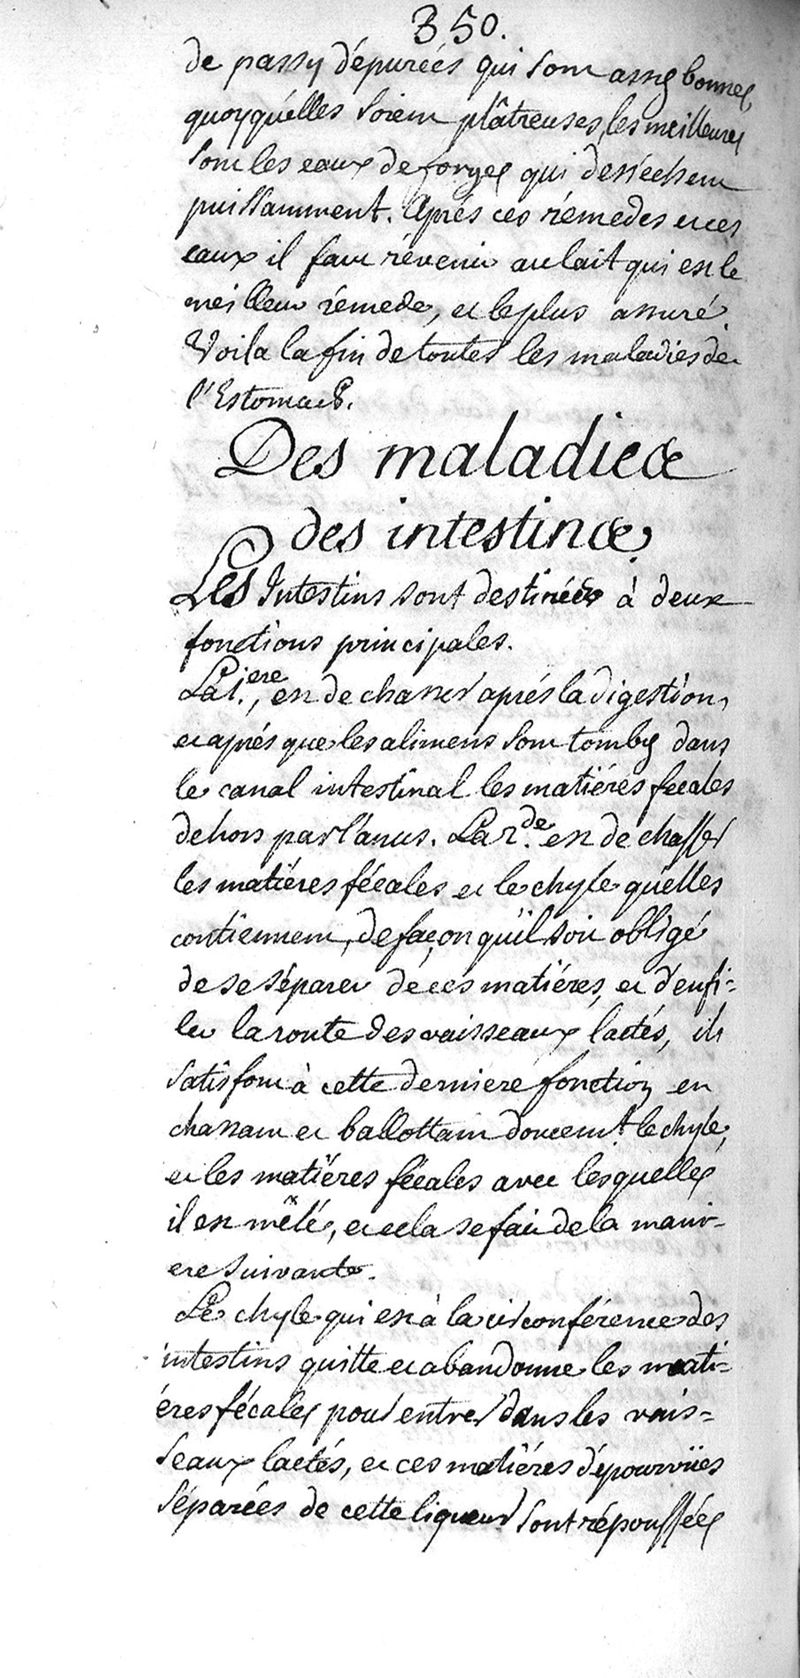 350.
de passy dépurées qui sont assés bonnes,
quoyqu'elles soient plâtreuses, les meilleures
sont les eaux de forges qui desséchent
puissamment. Aprés ces rémedes et ces
eaux il faut révenir au lait qui est le
meilleur rémede, et le plus assuré.
Voila la fin de toutes les maladies de
l'Estomach.
Des maladies
des intestins.
Les Intestins sont destinées à deux
fonctions principales.
La 1.ere, est de chasser aprés la digestion,
et aprés que les alimens sont tombés dans
le canal intestinal les matiéres fecales
dehors par l'anus. La 2.de est de chasser
les matiéres fécales et le chyle qu'elles
contiennent, de façon qu'il soit obligé
de se séparer de ces matiéres, et d'enfi=
ler la route des vaisseaux lactés, ils
satisfont à cette derniere fonction en
chassant et ballottant doucemt. le chyle,
et les matiéres fécales avec lesquelles
il est mêlé, et cela se fait de la mani-
ere suivante.
Le chyle qui est à la circonférence des
intestins quitte et abandonne les mati=
éres fécales pour entrer dans les vais=
seaux lactés, et ces matiéres dépourvües
séparées de cette liqueur sont répoussées